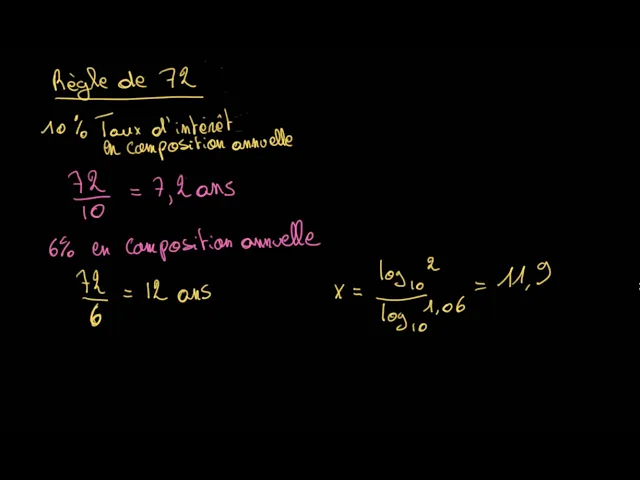 Règle de 72
10% Taux d'intérêt
en composition annuelle
72/10 = 7,2 ans
6% en composition annuelle
72/6 = 12 ans
x = log₁₀ 2 / log₁₀ 1,06 = 11,9